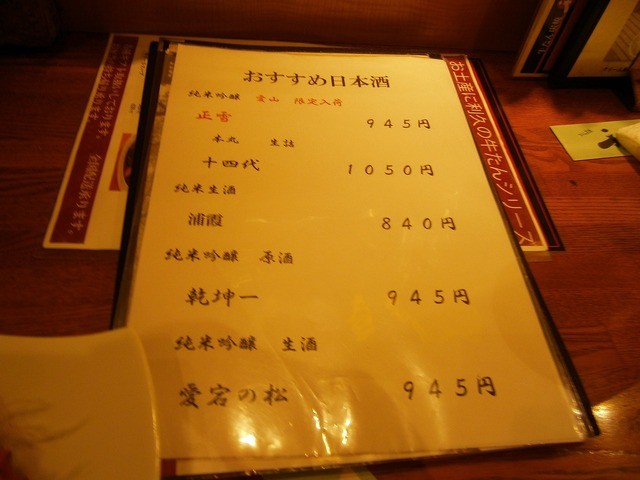 おすすめ日本酒
純米吟醸 愛山 限定入荷
正雪 945円
本丸 生詰
十四代 1050円
純米生酒
浦霞 840円
純米吟醸 原酒
乾坤一 945円
純米吟醸 生酒
愛宕の松 945円
お土産に利久の牛たんシリーズ